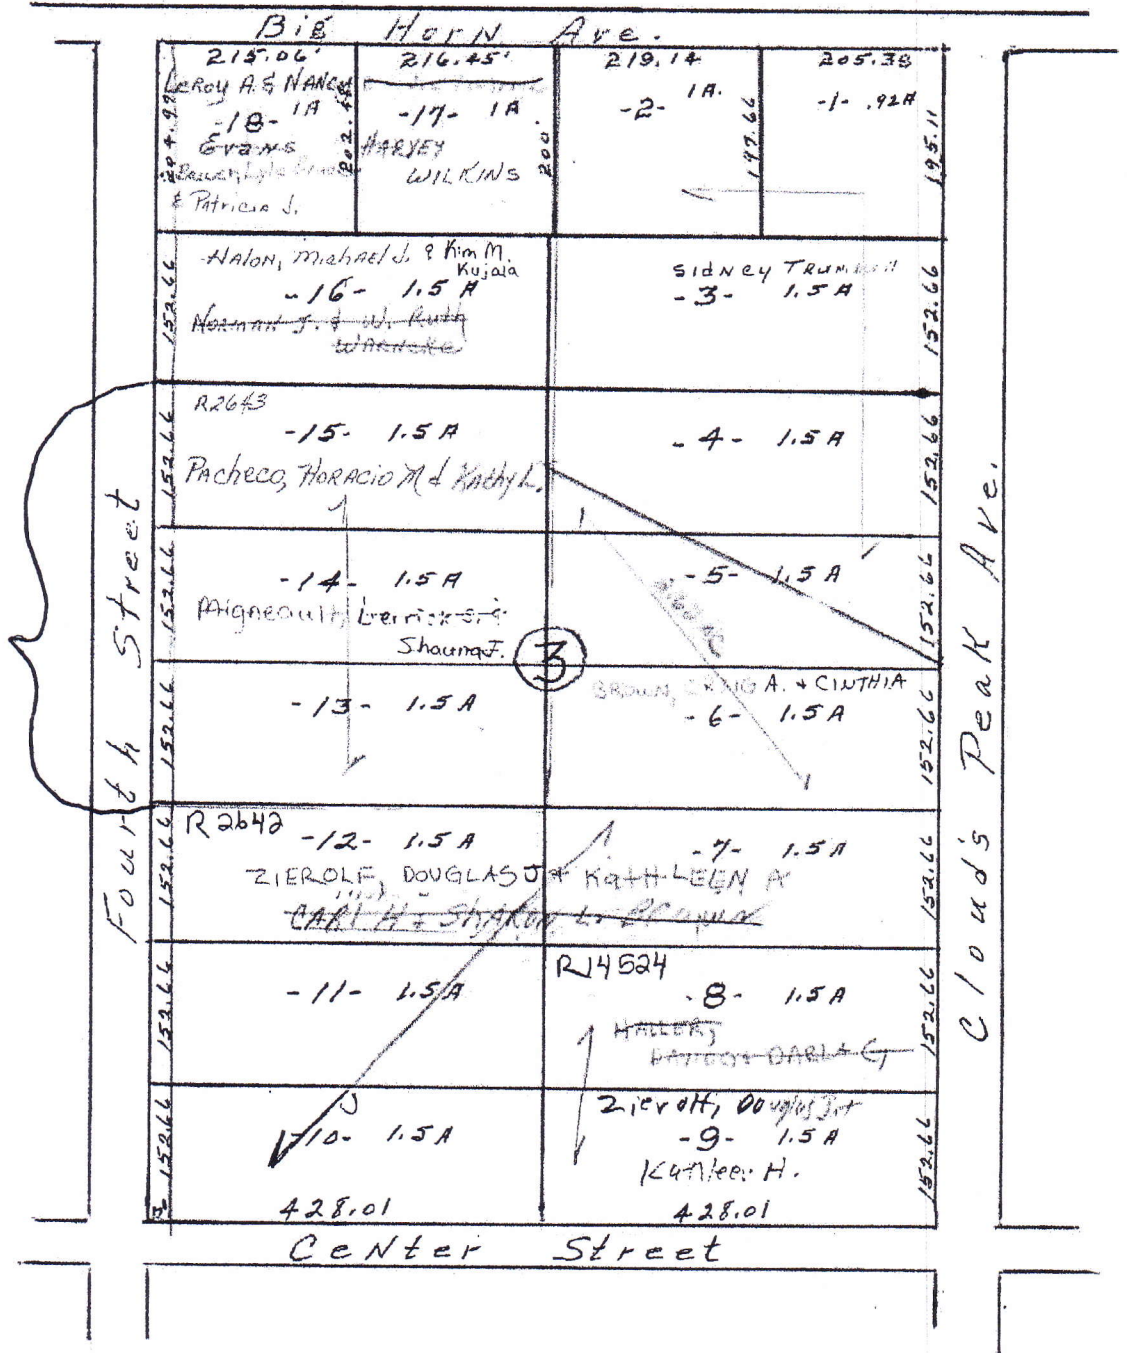 Big Horn Ave.
215.06' 216.45' 219.14 205.38
LeRoy A. & NANCY
-18- 1A
Evans
& Patricia J.
204.97
202.48
-17- 1A
HARVEY
WILKINS
200
-2- 1A.
197.66
-1- .92A
195.11
NALON, Michael J. & Kim M.
Kujala
-16- 1.5 A
Norman J. & W. Ruth
WARNEKE
152.66
SIDNEY
-3- 1.5 A
152.66
R2643
-15- 1.5 A
Pacheco, HORACIO M & Kathy L.
152.66
-4- 1.5 A
152.66
-14- 1.5 A
Migneault,
Shauna F.
152.66
-5- 1.5 A
152.66
3
-13- 1.5 A
152.66
BROWN, CRAIG A. + CINTHIA
-6- 1.5 A
152.66
R2642
-12- 1.5 A
-7- 1.5 A
ZIEROLF, DOUGLAS J + KATHLEEN A
CARL H & SHARON L. BROWN
152.66
152.66
-11- 1.5 A
152.66
R14524
-8- 1.5 A
HALLER,
152.66
-10- 1.5 A
152.66
428.01
Zierolf, Douglas J. +
-9- 1.5 A
Kathleen H.
152.66
428.01
Center Street
Fourth Street
Cloud's Peak Ave.